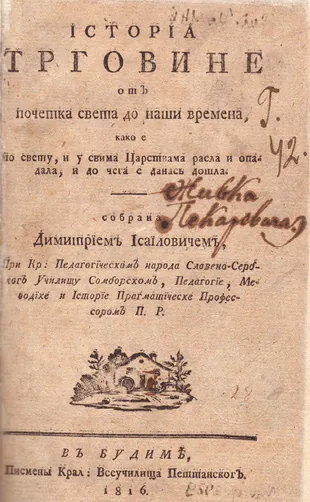 ІСТОРІА
ТРГОВИНЕ
отъ
почетка света до наши времена,
како е
по свету, и у свима Царствама расла и опа-
дала, и до чега е данасъ дошла.
Г. 42.
Живка
собрана
Димитріемъ Исаіловичемъ,
При Кр: Педагогіческомъ народа Славено-Серб-
когъ Училищу Сомборскомъ, Педагогіе, Ме-
ѳодіке и Історіе Прагматическе Профес-
соромъ П. Р.
ВЪ БУДИМѢ,
Писмены Крал: Всеучилища Пештанскогъ.
1816.